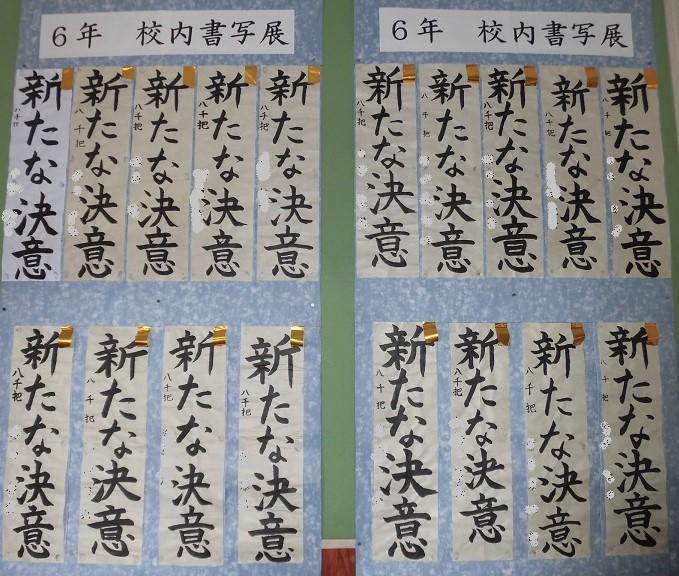 6年 校内書写展
新たな決意
八千把
新たな決意
八千把
新たな決意
八千把
新たな決意
八千把
新たな決意
八千把
新たな決意
八千把
新たな決意
八千把
新たな決意
八千把
新たな決意
八千把
6年 校内書写展
新たな決意
八千把
新たな決意
八千把
新たな決意
八千把
新たな決意
八千把
新たな決意
八千把
新たな決意
八千把
新たな決意
八千把
新たな決意
八千把
新たな決意
八千把